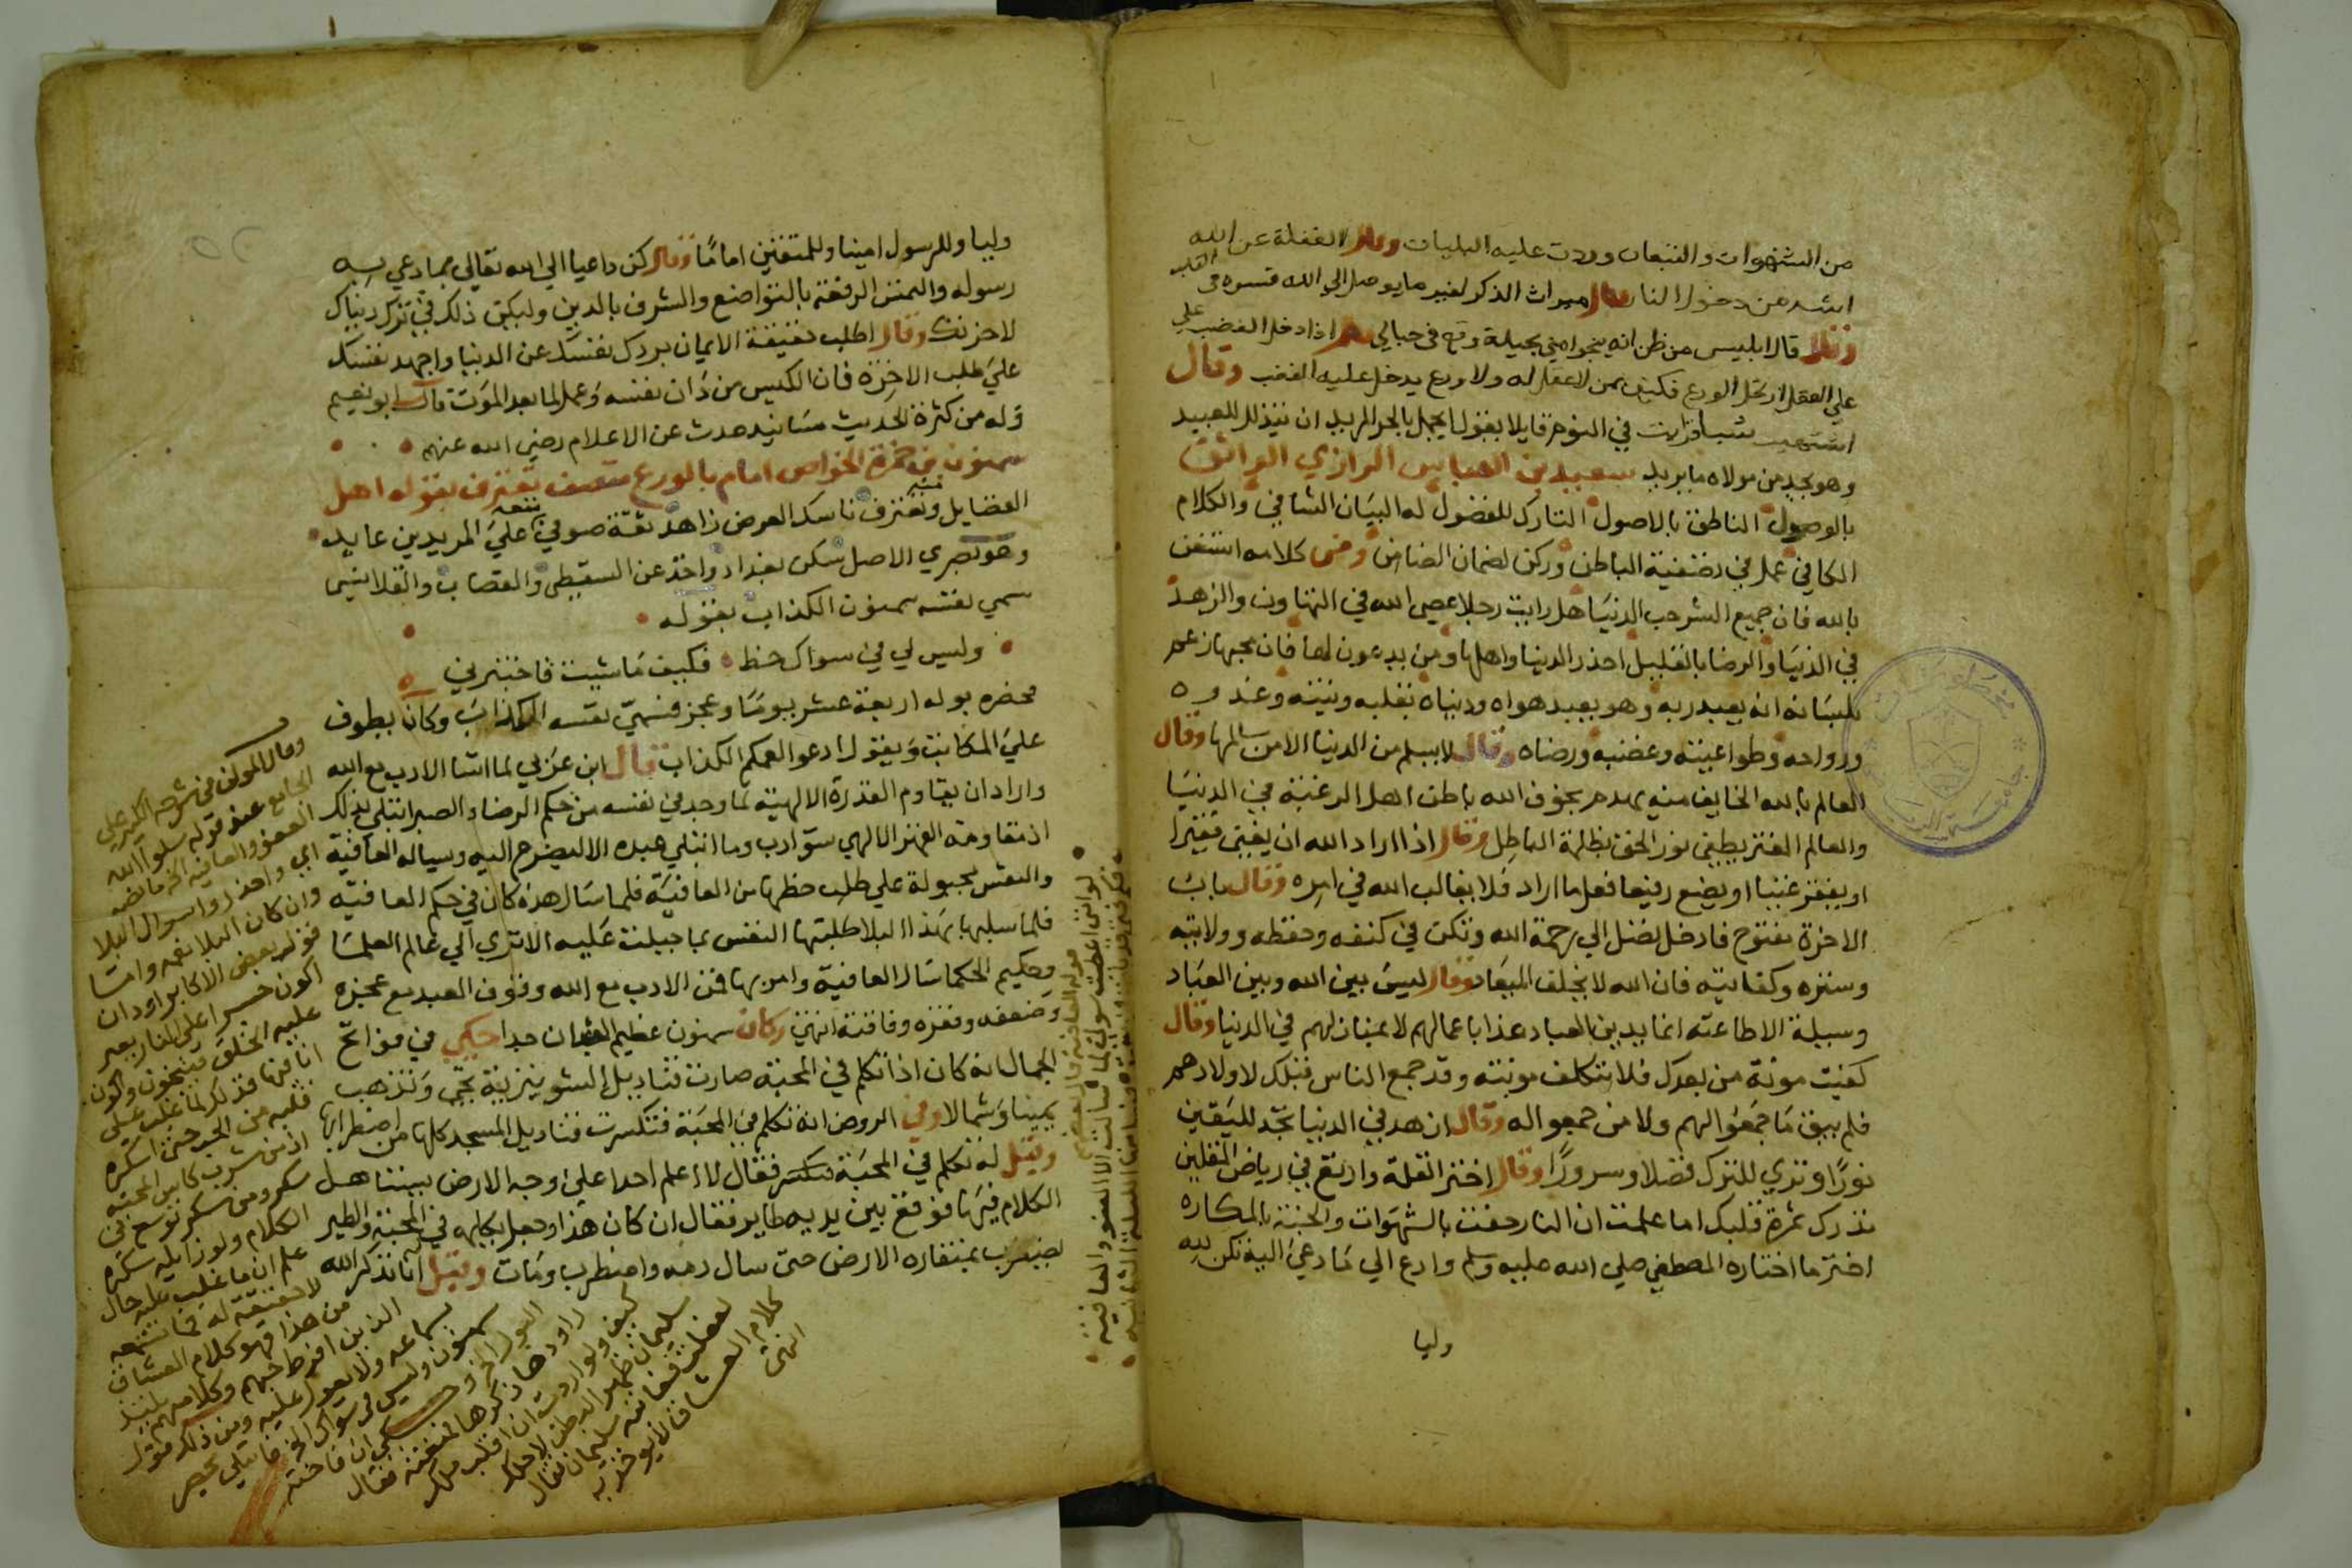 من الشهوات والتبعات وردت عليه البليات وقال الغفلة عن الله
اشد من دخول النار وقال ميراث الذكر لغير ما يوصل الى الله قسوة في القلب
وقال قال ابليس من ظن انه ينجو مني بحيلة وقع في حبالي وقال اذا دخل الغضب على
على العقل ارتحل الورع فكيف بمن لا عقل له ولا ورع يدخل عليه الغضب وقال
اشتهيت شيا فرايت في النوم قايلا يقول ايجمل بالحر المريد ان يتذلل للعبيد
وهو يجد من مولاه ما يريد سعيد بن العباس الرازي الواثق
بالوصول الناطق بالاصول التارك للفضول له البيان الشافي والكلام
الكافي عمل في تصفية الباطن وركن لضمان الضامن ومن كلامه استغن
بالله فان جميع الشر حب الدنيا هل رايت رجلا عصى الله في التهاون والزهد
في الدنيا والرضا بالقليل احذر الدنيا واهلها ومن يدعون لها فان محبها زعم
بلسانه انه يعبد ربه وهو يعبد هواه ودنياه بقلبه ونيته وغدوه
ورواحه وطواعيته وغضبه ورضاه وقال لا يسلم من الدنيا الا من سالمها وقال
العالم بالله الخايف منه يهدم بخوف الله باطن اهل الرغبة في الدنيا
والعالم المغتر يطفي نور الحق بظلمة الباطل وقال اذا اراد الله ان يغني فقيرا
او يفقر غنيا او يضع رفيعا فعل ما اراد فلا يغالب الله في امره وقال باب
الاخرة مفتوح فادخل تصل الى رحمة الله وتكن في كنفه وحفظه وولايته
وستره وكفايته فان الله لا يخلف الميعاد وقال ليس بين الله وبين العباد
وسيلة الا طاعته انما يدين العباد غدا باعمالهم لا بمنازلهم في الدنيا وقال
كفيت مونة من بعدك فلا تتكلف مونته وقد جمع الناس قبلك لاولادهم
فلم يبق ما جمعوا لهم ولا من جمعوا له وقال ازهد في الدنيا تجد لليقين
نورا وتري للترك فضلا وسرورا وقال اختر القلة وارتع في رياض المقلين
تدرك ثمرة قلبك اما علمت ان النار حفت بالشهوات والجنة بالمكاره
اختر ما اختاره المصطفى صلى الله عليه وسلم وادع الى ما دعى اليه تكن لله
وليا
وليا وللرسول امينا وللمتقين اماما وقال كن داعيا الى الله تعالى بما دعي به
رسوله والتمس الرفعة بالتواضع والشرف بالدين وليكن ذلك في ترك دنياك
لاخرتك وقال اطلب حقيقة الايمان بردك نفسك عن الدنيا واجهد نفسك
على طلب الاخرة فان الكيس من دان نفسه وعمل لما بعد الموت قال ابو نعيم
وله من كثرة الحديث مسانيد حدث عن الاعلام رضي الله عنهم
سمنون بن حمزة الخواص امام بالورع متصف تعترف بقوله اهل
الفضايل وتغترف ناسك العرض زاهد ثقة صوفي على المريدين عايد
وهو بصري الاصل سكن بغداد واخذ عن السقطي والقصاب والقلانسي
سمي نفسه سمنون الكذاب بقوله
وليس لي في سواك حظ فكيف ما شيت فاختبرني
فحصره بوله اربعة عشر يوما وعجز فسمى نفسه الكذاب وكان يطوف
على المكاتب ويقول ادعوا لعمكم الكذاب قال ابن عربي لما اسا الادب مع الله
واراد ان يقاوم القدرة الالهية لما وجد في نفسه من حكم الرضا والصبر ابتلي بذلك
اذ مقاومة القهر الالهي سوء ادب وما ابتلي عبده الا ليضرع اليه ويساله العافية
والنفس مجبولة على طلب حظها من العافية فلما سال هذه كان في حكم العافية
فلما سلبها بهذا البلا طلبتها النفس بما جبلت عليه الا ترى الى عالم العلما
وحكيم الحكما سال العافية وامر بها فمن الادب مع الله وقوف العبد مع عجزه
وضعفه وفقره وفاقته انتهى وكان سمنون عظيم الشان جدا حكي في فواتح
الجمال انه كان اذا تكلم في المحبة صارت قناديل الشونيزية تجي وتذهب
يمينا وشمالا وفي الروض انه تكلم في المحبة فتكسرت قناديل المسجد كلها من اضطرابها
وقيل له تكلم في المحبة فقال لا اعلم احدا على وجه الارض يستاهل
الكلام فيها فوقع بين يديه طاير فقال ان كان هذا وجعل يكلمه في المحبة والطير
يضرب بمنقاره الارض حتى سال دمه واضطرب ومات وقيل انا نذكر الله
وقال المولف في شرحه الكبير على
الجامع عند قوله سلوا الله
العفو والعافية الخ ما نصه
اي واحذروا سوال البلا
وان كان البلا نعمة واما
قول بعض الاكابر اود ان
اكون جسرا على النار يعبر
عليه الخلق فينجون واكون
انا فيها فذلك لما غلب على
قلبه من الحب حتى اسكره
اذ من شرب كاس المحبة
سكر ومن سكر توسع في
الكلام ولو زايله سكره
علم ان ما غلب عليه حال
لا حقيقة له فما تسمعه
من هذا فهو كلام العشاق
الذين افرط حبهم وكلامهم يستلذ
بسماعه ولا يعول عليه ومن ذلك قول
سمنون وليس في سواك الخ فابتلي بحصر
البول الخ وحكي ان فاختة
راودها ذكرها فمنعته فقال
كيف ولو اردت ان اقلب ملك
سليمان ظهرا لبطن لاجلك
لفعلت فعاتبه سليمان فقال
كلام العشاق لا يواخذ به
انتهى